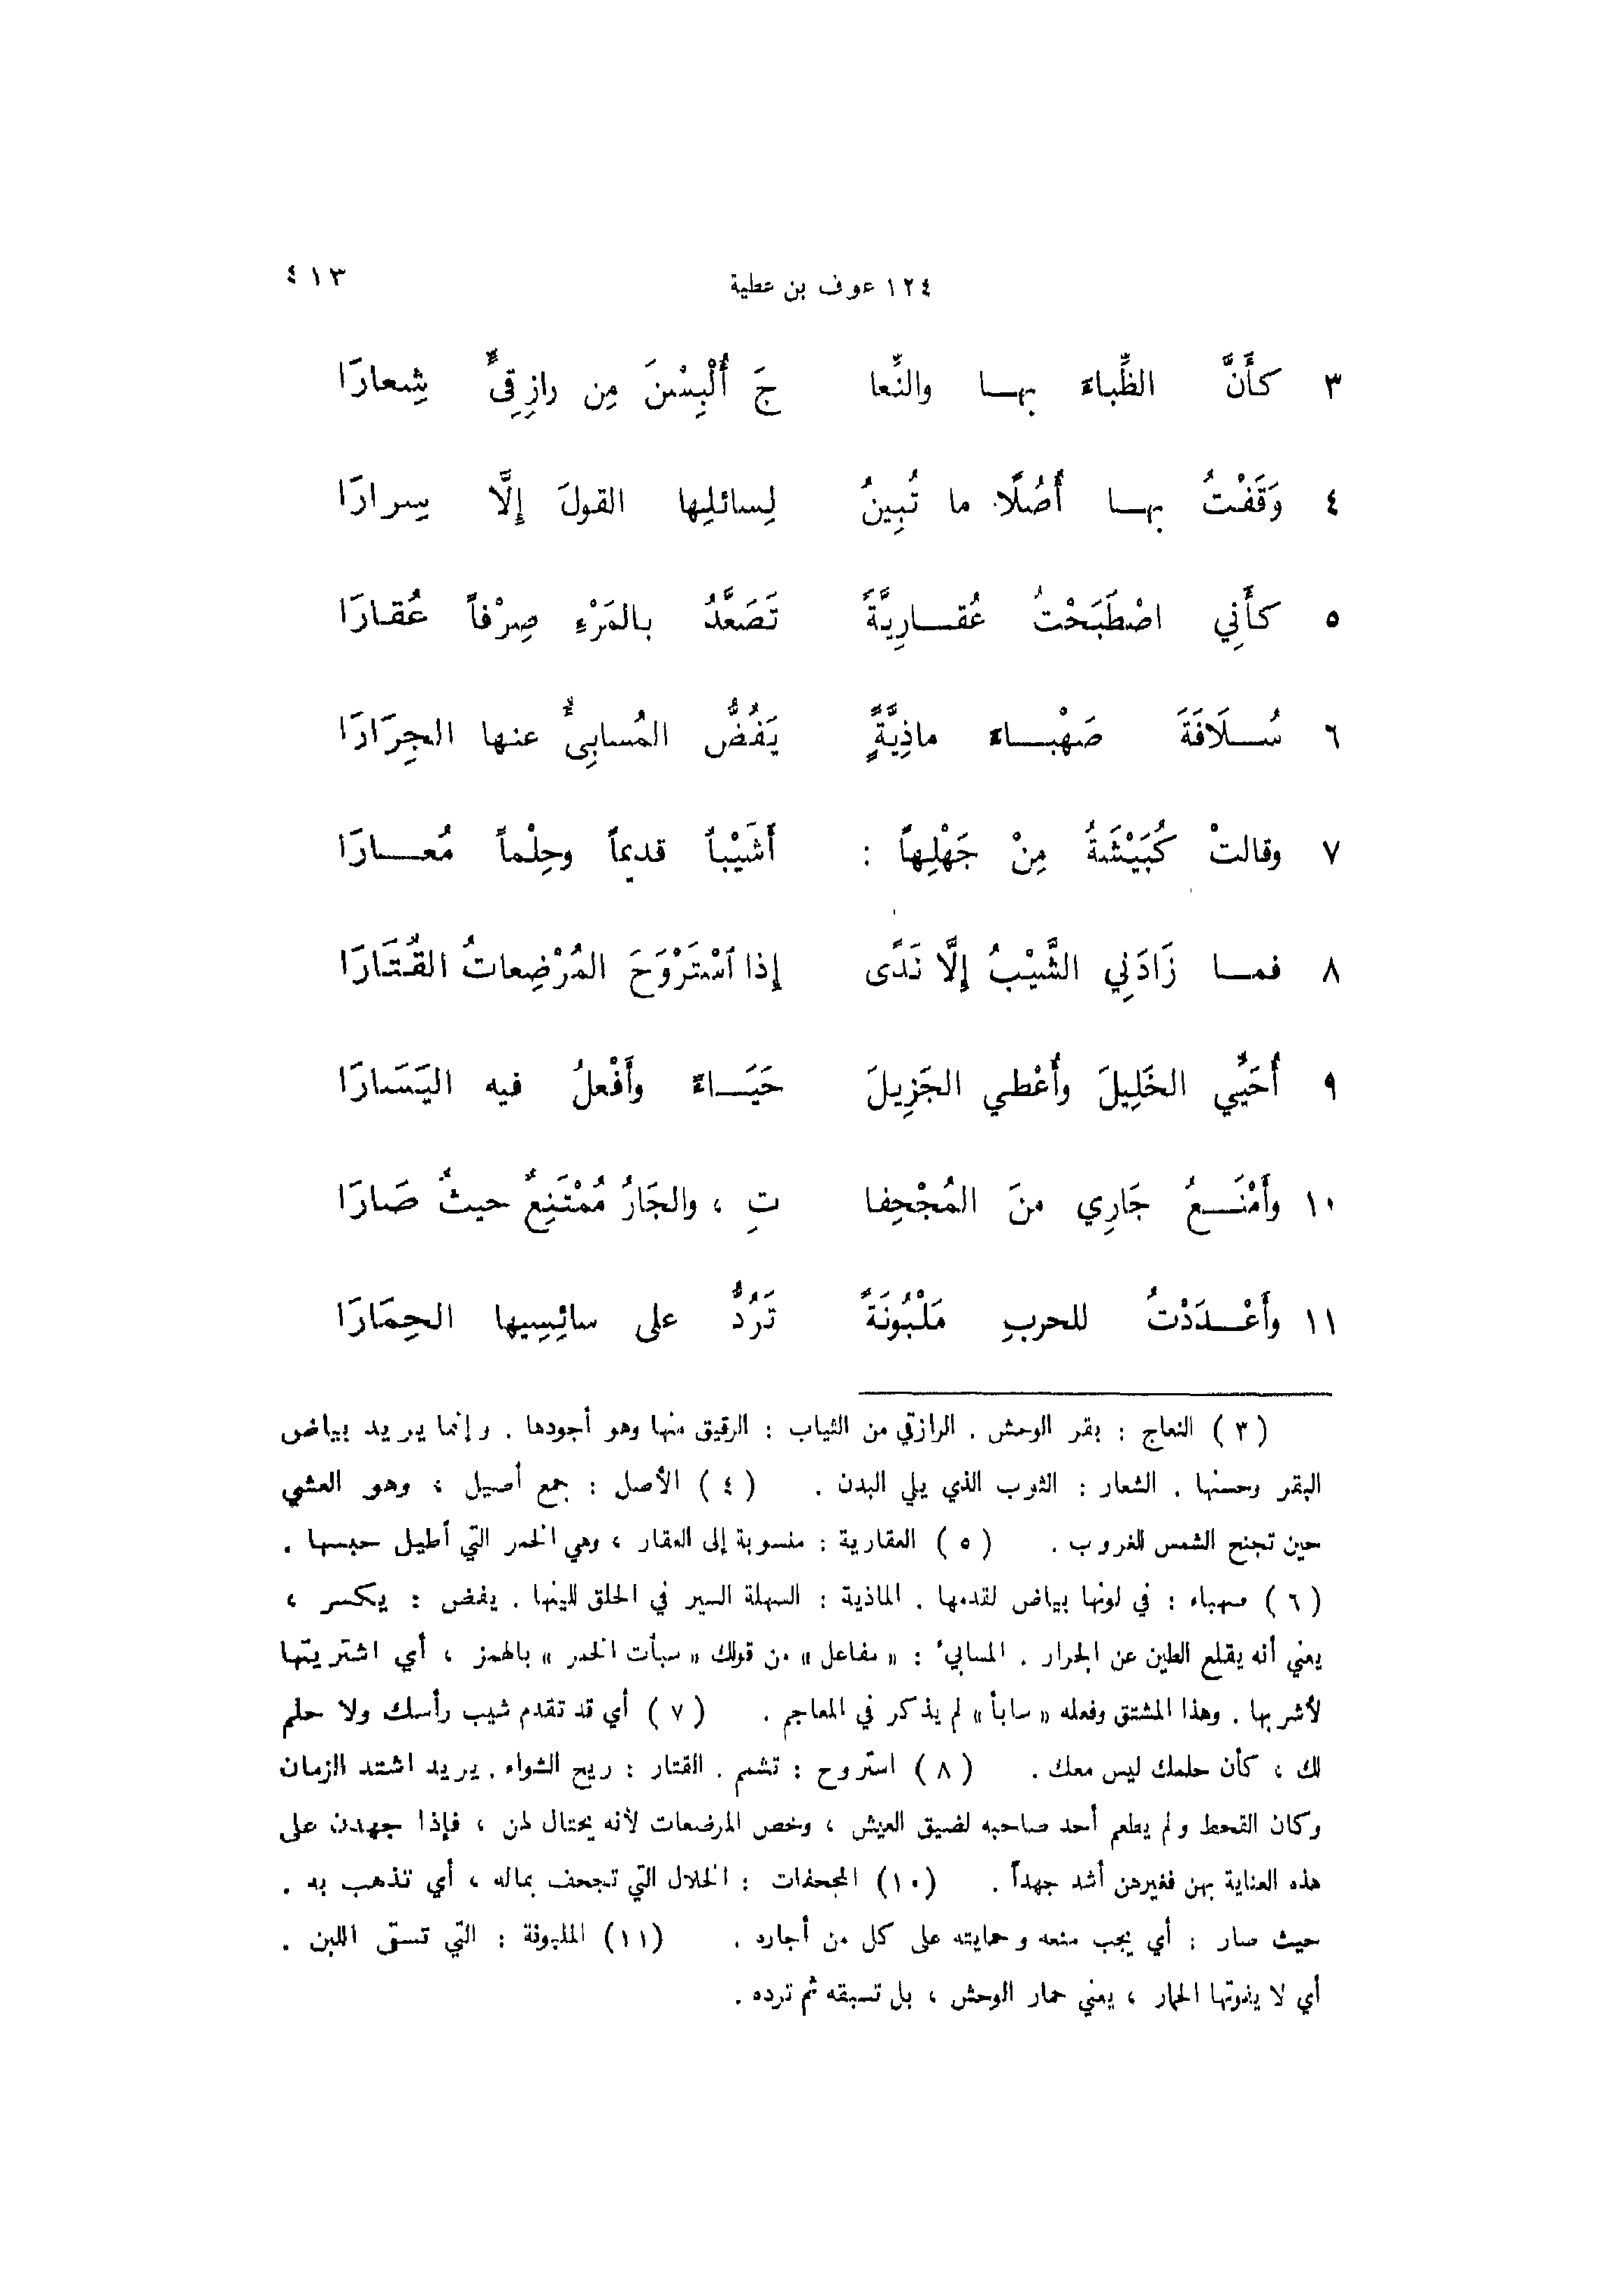 ١٢٤ عوف بن عطية ٤١٣
٣ كأَنَّ الظِّباءَ بهـا والنِّعا جَ أُلْبِسْنَ مِن رازِقِىٍّ شِعارَا
٤ وَقَفْتُ بهـا أُصُلًا ما تُبِينُ لِسائلِها القولَ إِلَّا سِرارَا
٥ كأَنِّي اصْطَبَحْتُ عُقـارِيَّةً تَصَعَّدُ بالمَرْءِ صِرْفاً عُقارَا
٦ سُـلَافَةَ صَهْبـاءَ ماذِيَّةٍ يَفُضُّ المُسابِىُٔ عنها الجِرَارَا
٧ وقالتْ كُبَيْشَةُ مِنْ جَهْلِهاً : أَشَيْباً قديماً وحِلْماً مُعـارَا
٨ فمـا زَادَنِي الشَّيْبُ إِلَّا نَدًى إِذا ٱسْتَرْوَحَ المُرْضِعاتُ القُتَارَا
٩ أُحَيِّي الخَلِيلَ وأُعْطي الجَزِيلَ حَيَـاءً وأَفْعلُ فيه اليَسَارَا
١٠ وأَمْنَـعُ جَارِي منَ المُجْحِفا تِ ، والجَارُ مُمْتَنِعٌ حيثُ صَارَا
١١ وأَعْـدَدْتُ للحربِ مَلْبُونَةً تَرُدُّ على سائِسِيها الحِمَارَا
( ٣ ) النعاج : بقر الوحش . الرازقي من الثياب : الرقيق منها وهو أجودها . وإنما يريد بياض
البقر وحسنها . الشعار : الثوب الذي يلي البدن . ( ٤ ) الأصل : جمع أصيل ، وهو العشي
حين تجنح الشمس للغروب . ( ٥ ) العقارية : منسوبة إلى العقار ، وهي الخمر التي أطيل حبسها .
( ٦ ) صهباء : في لونها بياض لقدمها . الماذية : السهلة السير في الحلق للينها . يفض : يكسر ،
يعني أنه يقلع الطين عن الجرار . المسابئ : « مفاعل » من قولك « سبأت الخمر » بالهمز ، أي اشتريتها
لأشربها . وهذا المشتق وفعله « سابأ » لم يذكر في المعاجم . ( ٧ ) أي قد تقدم شيب رأسك ولا حلم
لك ، كأن حلمك ليس معك . ( ٨ ) استروح : تشمم . القتار : ريح الشواء . يريد اشتد الزمان
وكان القحط ولم يطعم أحد صاحبه لضيق العيش ، وخص المرضعات لأنه يحتال لهن ، فإذا جهدن على
هذه العناية بهن فغيرهن أشد جهداً . (١٠) المجحفات : الخلال التي تجحف بماله ، أي تذهب به .
حيث صار : أي يجب منعه وحمايته على كل من أجاره . (١١) الملبونة : التي تسقى اللبن .
أي لا يفوتها الحمار ، يعني حمار الوحش ، بل تسبقه ثم ترده .